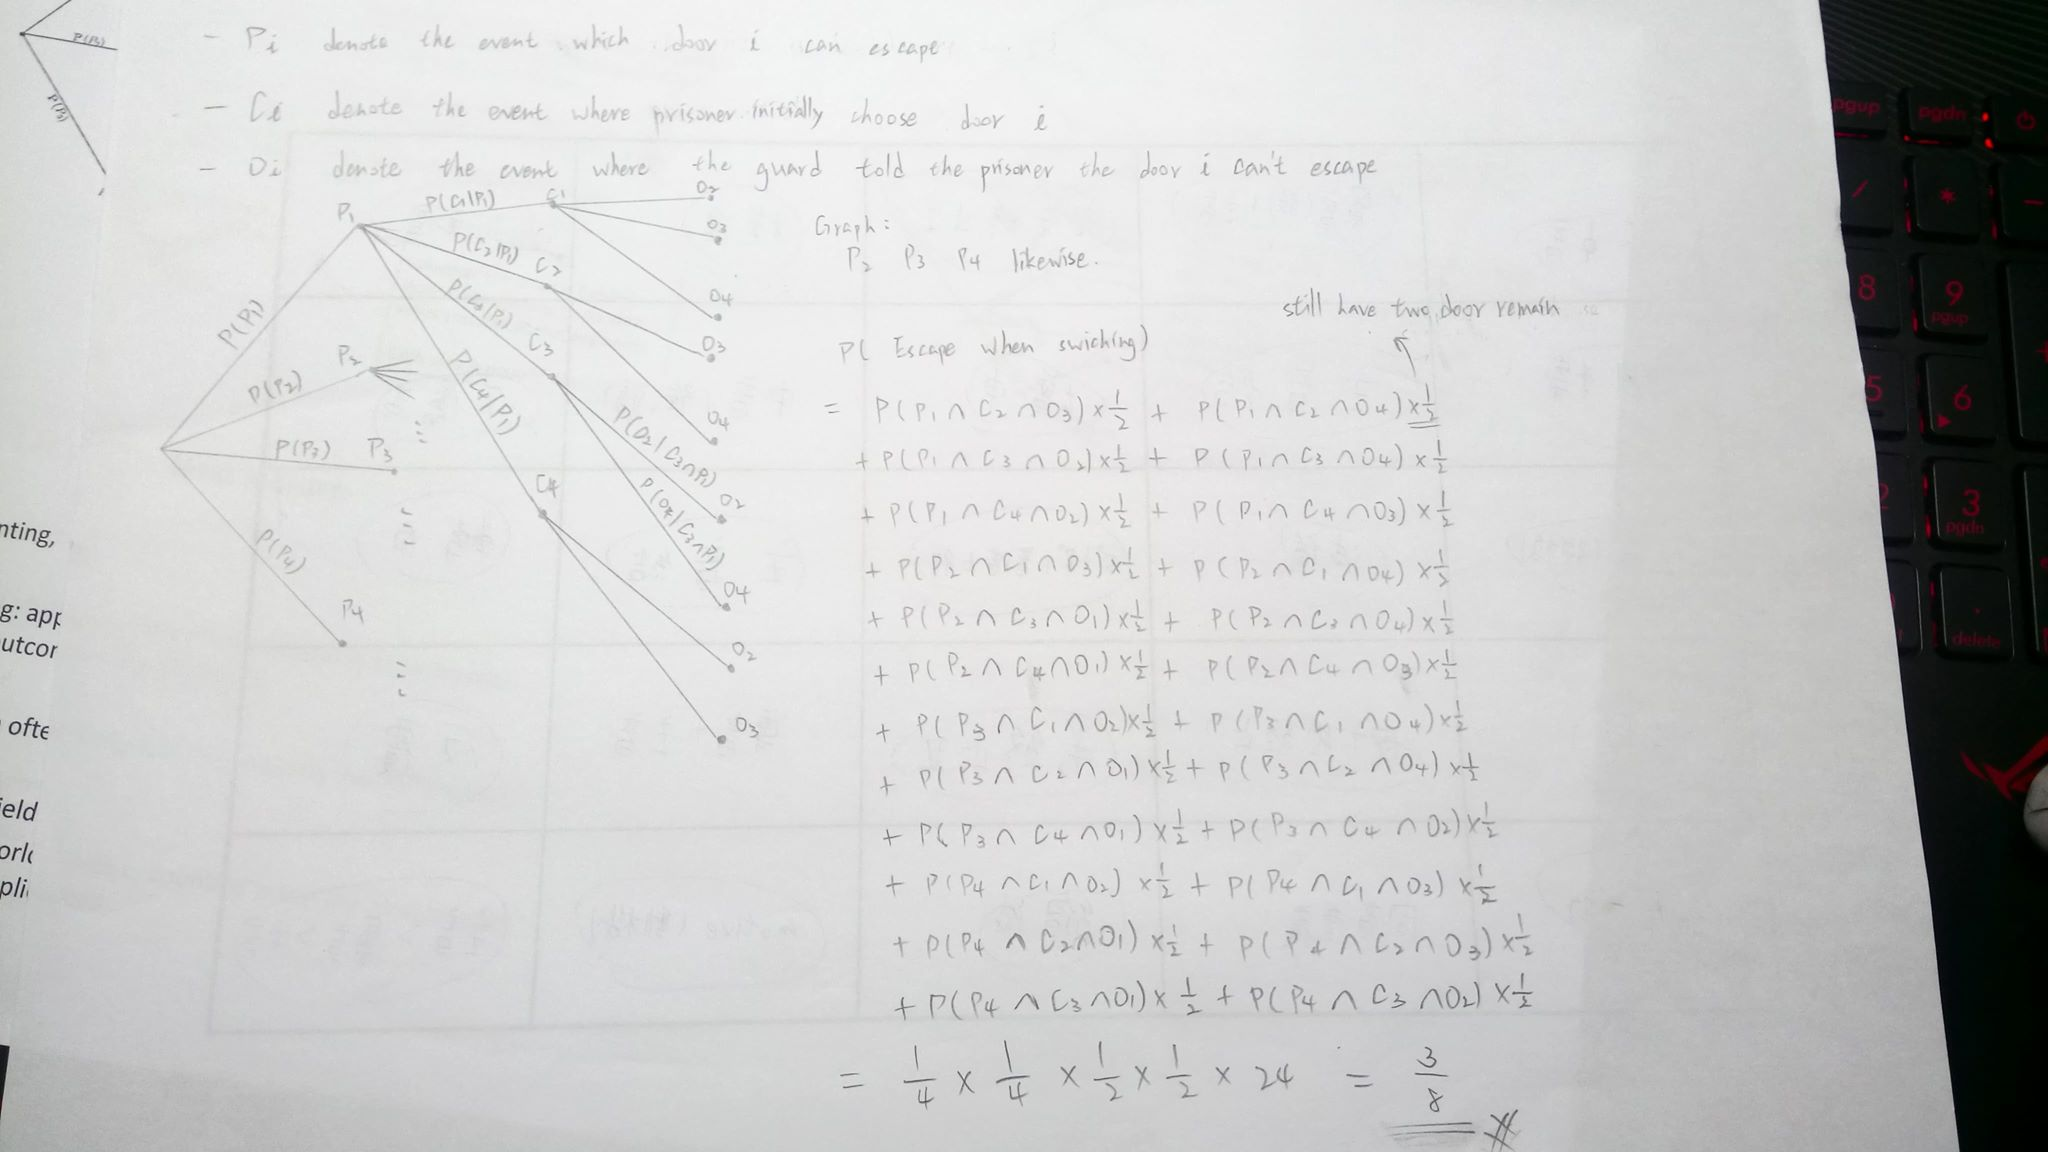 - Pi denote the event which door i can escape
- Ci denote the event where prisoner initially choose door i
- Oi denote the event where the guard told the prisoner the door i can't escape
P(P2)
P(P3)
P1 P(C1|P1) C1 O2
O3
P(C2|P1) C2
O4
P(C3|P1) C3
O3
P(P1)
P2
P(P2)
P(C4|P1)
O4
P(O2|C3∩P1)
P(P3) P3
C4
O2
P(O4|C3∩P1)
P(P4)
O4
P4
O2
O3
Graph:
P2 P3 P4 likewise.
still have two door remain
P( Escape when swiching)
= P(P1 ∩ C2 ∩ O3)×1/2 + P(P1 ∩ C2 ∩ O4)×1/2
+ P(P1 ∩ C3 ∩ O2)×1/2 + P(P1 ∩ C3 ∩ O4)×1/2
+ P(P1 ∩ C4 ∩ O2)×1/2 + P(P1 ∩ C4 ∩ O3)×1/2
+ P(P2 ∩ C1 ∩ O3)×1/2 + P(P2 ∩ C1 ∩ O4)×1/2
+ P(P2 ∩ C3 ∩ O1)×1/2 + P(P2 ∩ C3 ∩ O4)×1/2
+ P(P2 ∩ C4 ∩ O1)×1/2 + P(P2 ∩ C4 ∩ O3)×1/2
+ P(P3 ∩ C1 ∩ O2)×1/2 + P(P3 ∩ C1 ∩ O4)×1/2
+ P(P3 ∩ C2 ∩ O1)×1/2 + P(P3 ∩ C2 ∩ O4)×1/2
+ P(P3 ∩ C4 ∩ O1)×1/2 + P(P3 ∩ C4 ∩ O2)×1/2
+ P(P4 ∩ C1 ∩ O2)×1/2 + P(P4 ∩ C1 ∩ O3)×1/2
+ P(P4 ∩ C2 ∩ O1)×1/2 + P(P4 ∩ C2 ∩ O3)×1/2
+ P(P4 ∩ C3 ∩ O1)×1/2 + P(P4 ∩ C3 ∩ O2)×1/2
= 1/4 × 1/4 × 1/2 × 1/2 × 24 = 3/8
nting,
g: app
utcor
ofte
ield
orld
plic
pgup pgdn
/ * -
8 9 pgup
5 6
2 3 pgdn
. delete